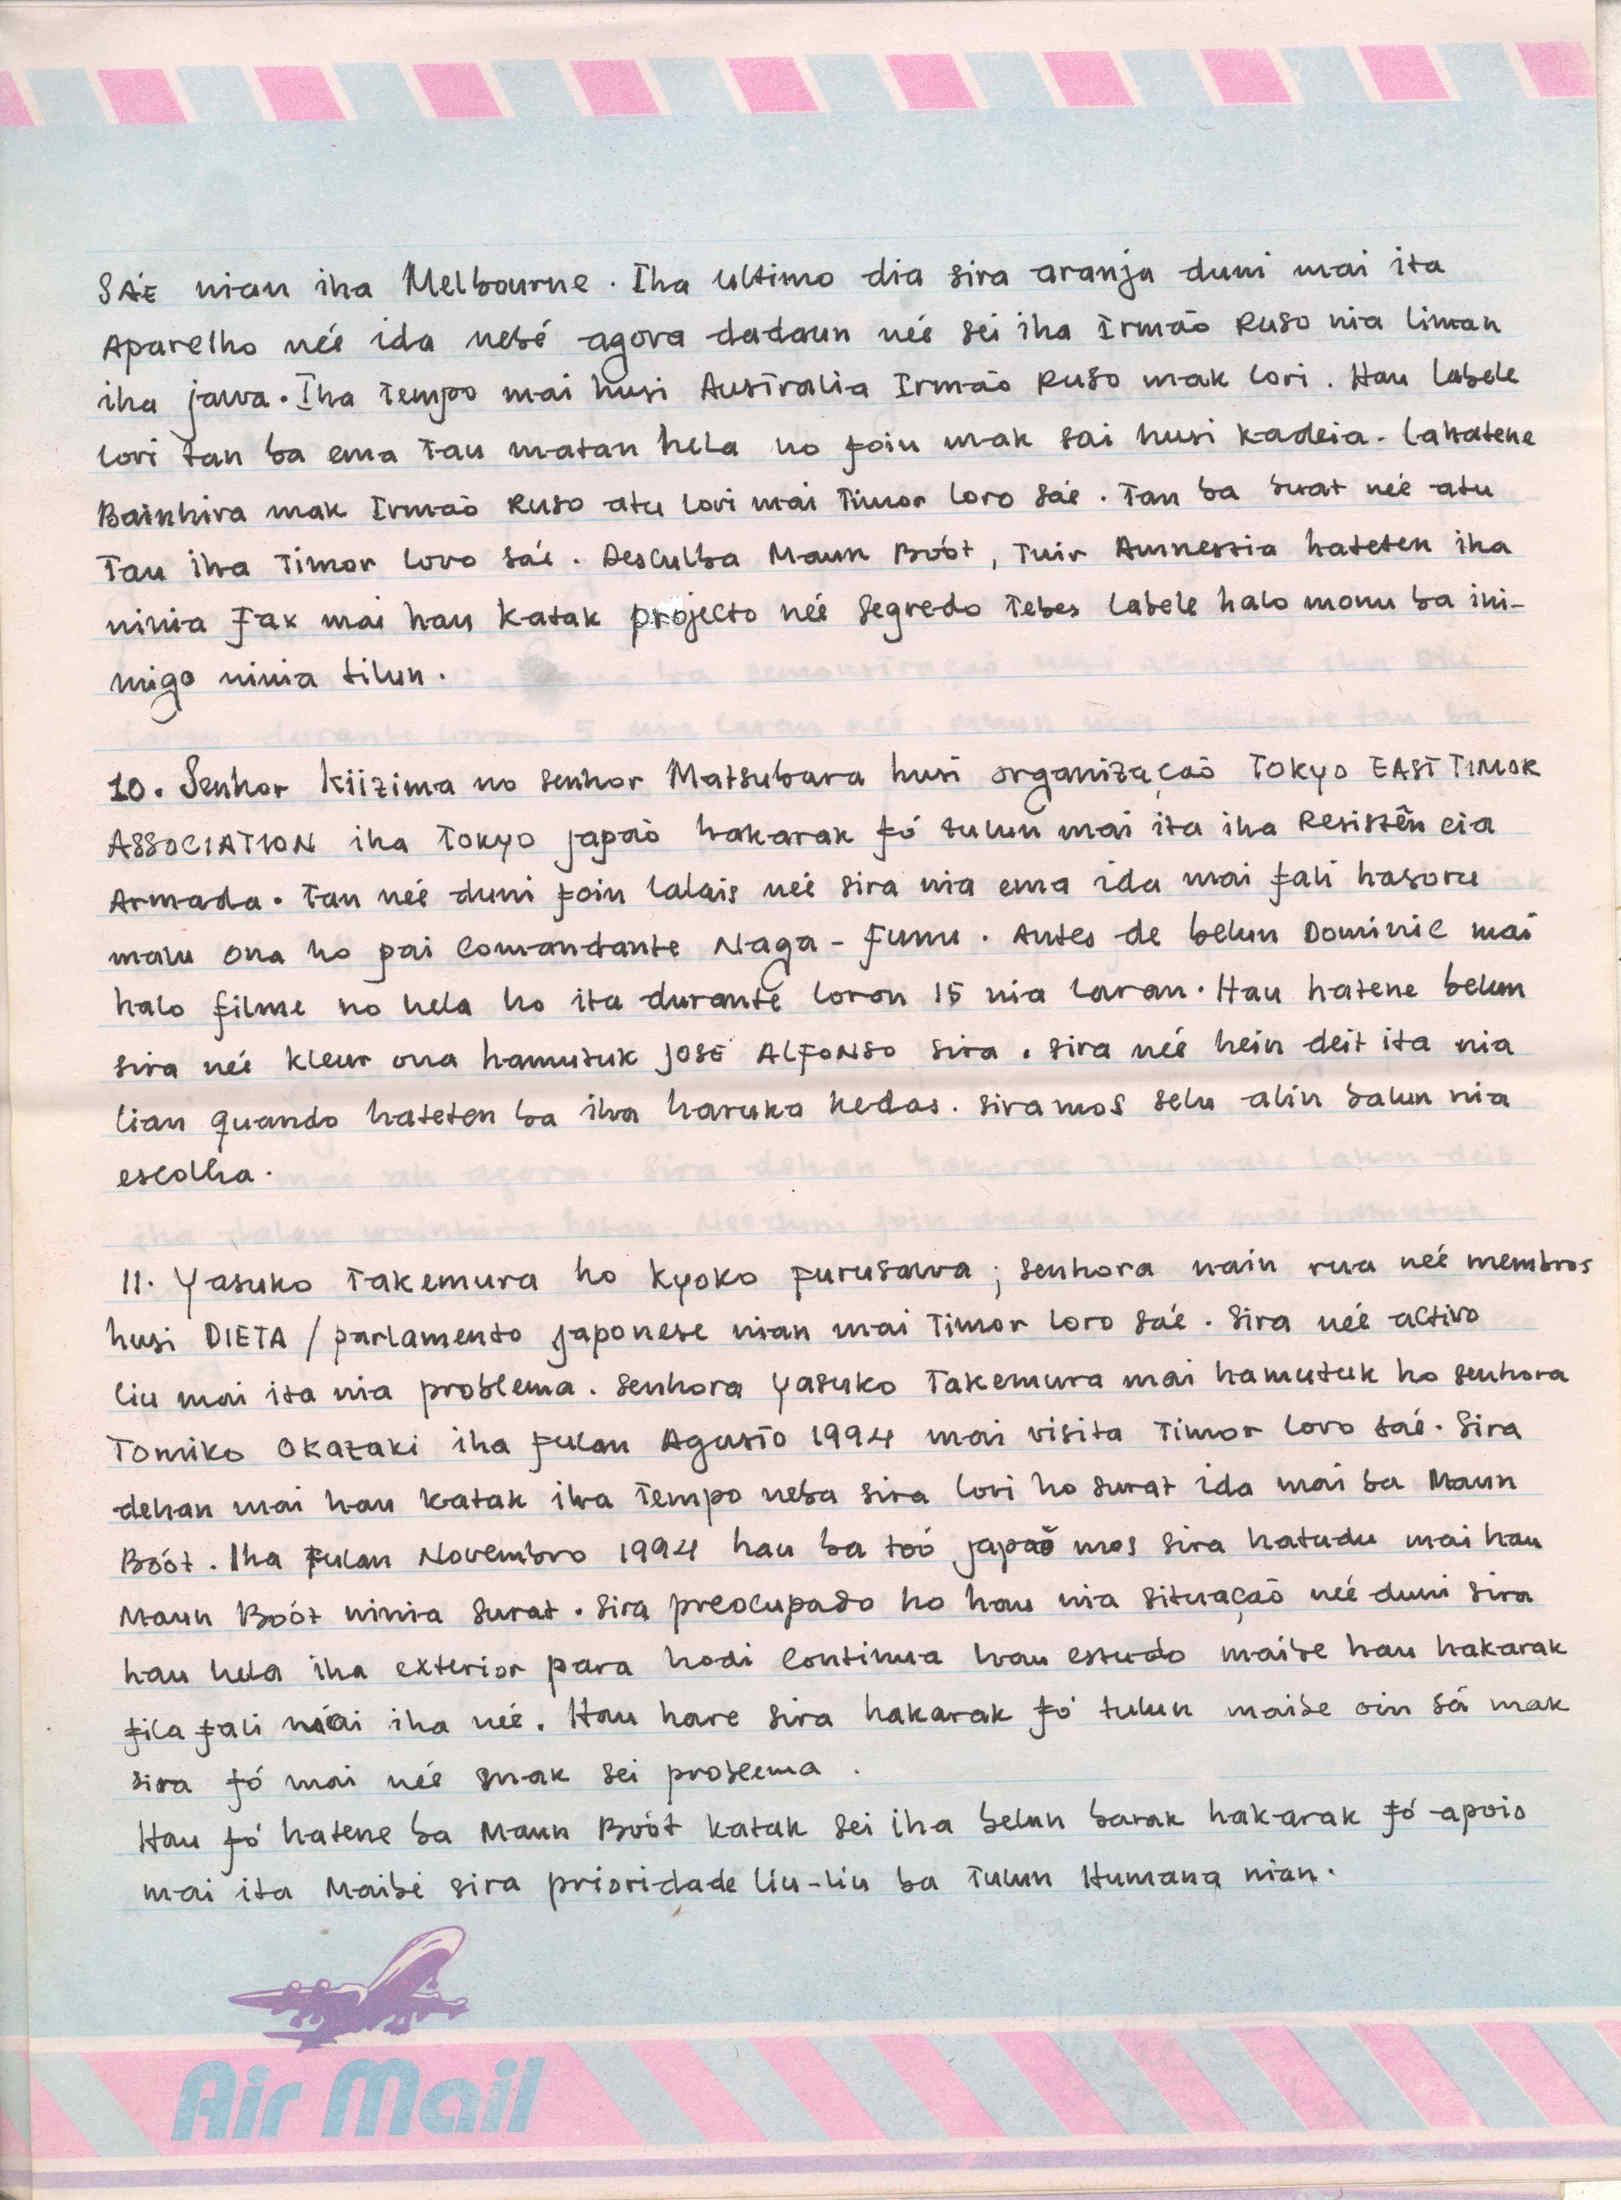 SÁE nian iha Melbourne. Iha ultimo dia sira aranja duni mai ita
Aparelho néé ida nebé agora dadaun néé sei iha Irmaõ Ruso nia liman
iha jawa. Iha Tempo mai husi Australia Irmaõ Ruso mak lori. Hau labele
lori tan ba ema Tau matan hela no foin mak sai husi kadeia. Lahatene
Bainhira mak Irmaõ Ruso atu lori mai Timor loro sáe. Tan ba Surat néé atu
Tau iha Timor loro sáe. Desculba Maun Boót, Tuir Amnestia hateten iha
ninia Fax mai hau katak projecto néé segredo Tebes labele halo monu ba ini-
migo ninia tilun.
10. Senhor Kiizima no senhor Matsubara husi organizaçaõ TOKYO EAST TIMOR
ASSOCIATION iha TOKYO japaõ hakarak fó tulun mai ita iha Resistẽncia
Armada. Tan néé duni foin lalais néé sira nia ema ida mai fali hasoru
malu ona ho pai Comandante Naga - Funu. Antes de belun Dominic mai
halo filme no hela ho ita durante loron 15 nia laran. Hau hatene belun
sira néé kleur ona hamutuk JOSE ALFONSO sira. sira néé hein deit ita nia
lian quando hateten ba iha haruka kedas. sira mos selu alin balun nia
escolha.
11. Yasuko Takemura ho Kyoko Furusawa; senhora nain rua néé membros
husi DIETA / parlamento japonese nian mai Timor loro sáe. Sira néé activo
liu mai ita nia problema. senhora Yasuko Takemura mai hamutuk ho senhora
Tomiko Okazaki iha fulan Agusto 1994 mai visita Timor loro saé. Sira
dehan mai hau katak iha Tempo neba sira lori ho surat ida mai ba Maun
Boót. Iha Fulan Novembro 1994 hau ba toó japaõ mos sira hatudu mai hau
Maun Boót ninia surat. Sira preocupado ho hau nia situaçaõ néé duni sira
hau hela iha exterior para hodi Continua hau estudo maibe hau hakarak
fila fali mai iha néé. Hau hare sira hakarak fó tulun maibe oin sá mak
sira fó mai néé mak sei problema.
Hau fó hatene ba Maun Boót katak sei iha belun barak hakarak fó apoio
mai ita Maibé sira prioridade liu-liu ba Tulun Humana nian.
Air Mail